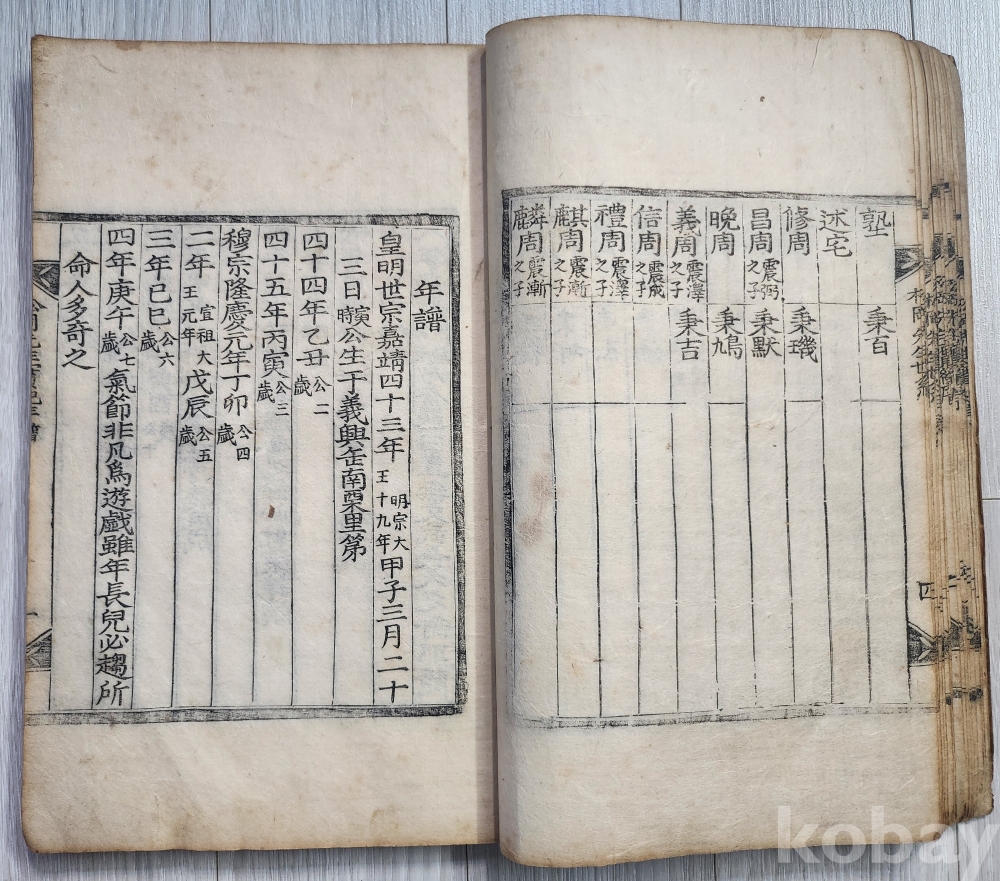 塾 秉百
述宅
修周 秉璣
昌周 震弼之子 秉默
晩周 秉鳩
義周 震澤之子 秉吉
信周 之子
禮周 震澤之子
麒周 震漸之子
麟周 震漸之子
先生世系 四
年譜
皇明世宗嘉靖四十三年 明宗大王十九年 甲子三月二十
三日 寅時 公生于義興缶南栗里第
四十四年乙丑 公二歲
四十五年丙寅 公三歲
穆宗隆慶元年丁卯 公四歲
二年 宣祖大王元年 戊辰 公五歲
三年己巳 公六歲
四年庚午 公七歲 氣節非凡爲遊戲雖年長兒必趨所
命人多奇之
kobay